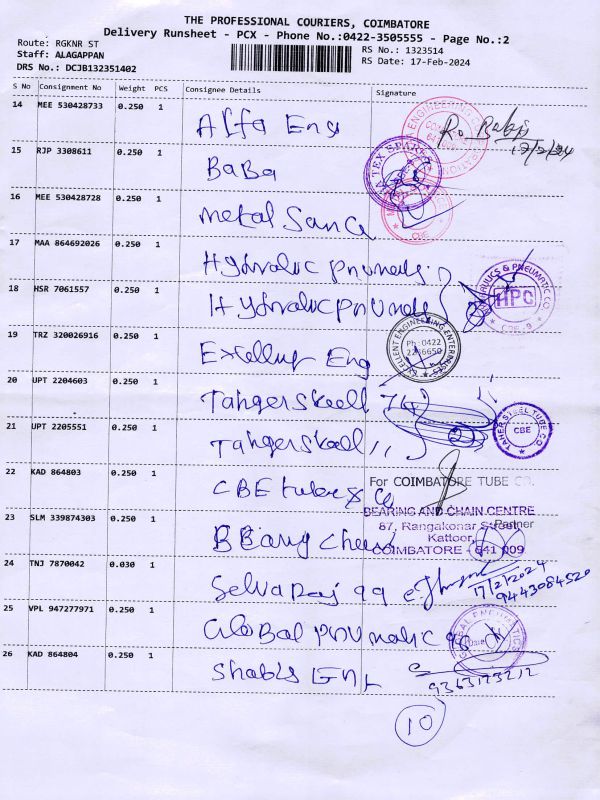 THE PROFESSIONAL COURIERS, COIMBATORE
Delivery Runsheet - PCX - Phone No.:0422-3505555 - Page No.:2
Route: RGKNR ST
RS No.: 1323514
Staff: ALAGAPPAN
RS Date: 17-Feb-2024
DRS No.: DCJB132351402
S No Consignment No Weight PCS Consignee Details Signature
14 MEE 530428733 0.250 1 Alfa Eng
17/2/24
15 RJP 3308611 0.250 1 BaBa
16 MEE 530428728 0.250 1 metal Sand
CBE
17 MAA 864692026 0.250 1 Hydraulic
18 HSR 7061557 0.250 1 Hydraulic
HYDRAULICS & PNEUMATIC CO. HPC CBE-9
19 TRZ 320026916 0.250 1 Eng
EXCELLENT ENGINEERING ENTERPRISES Ph: 0422 2236650
20 UPT 2204603 0.250 1
21 UPT 2205551 0.250 1
TAHER STEEL TUBE CO CBE
22 KAD 864803 0.250 1 CBE tube & Co
For COIMBATORE TUBE CO.
Partner
23 SLM 339874303 0.250 1
BEARING AND CHAIN CENTRE
87, Rangakonar Street,
Kattoor,
COIMBATORE - 641 009
24 TNJ 7870042 0.030 1 Selvaraj 99
17/2/2024
9443084520
25 VPL 947277971 0.250 1 Global
GLOBAL PNEUMATICS
26 KAD 864804 0.250 1
9363123212
10